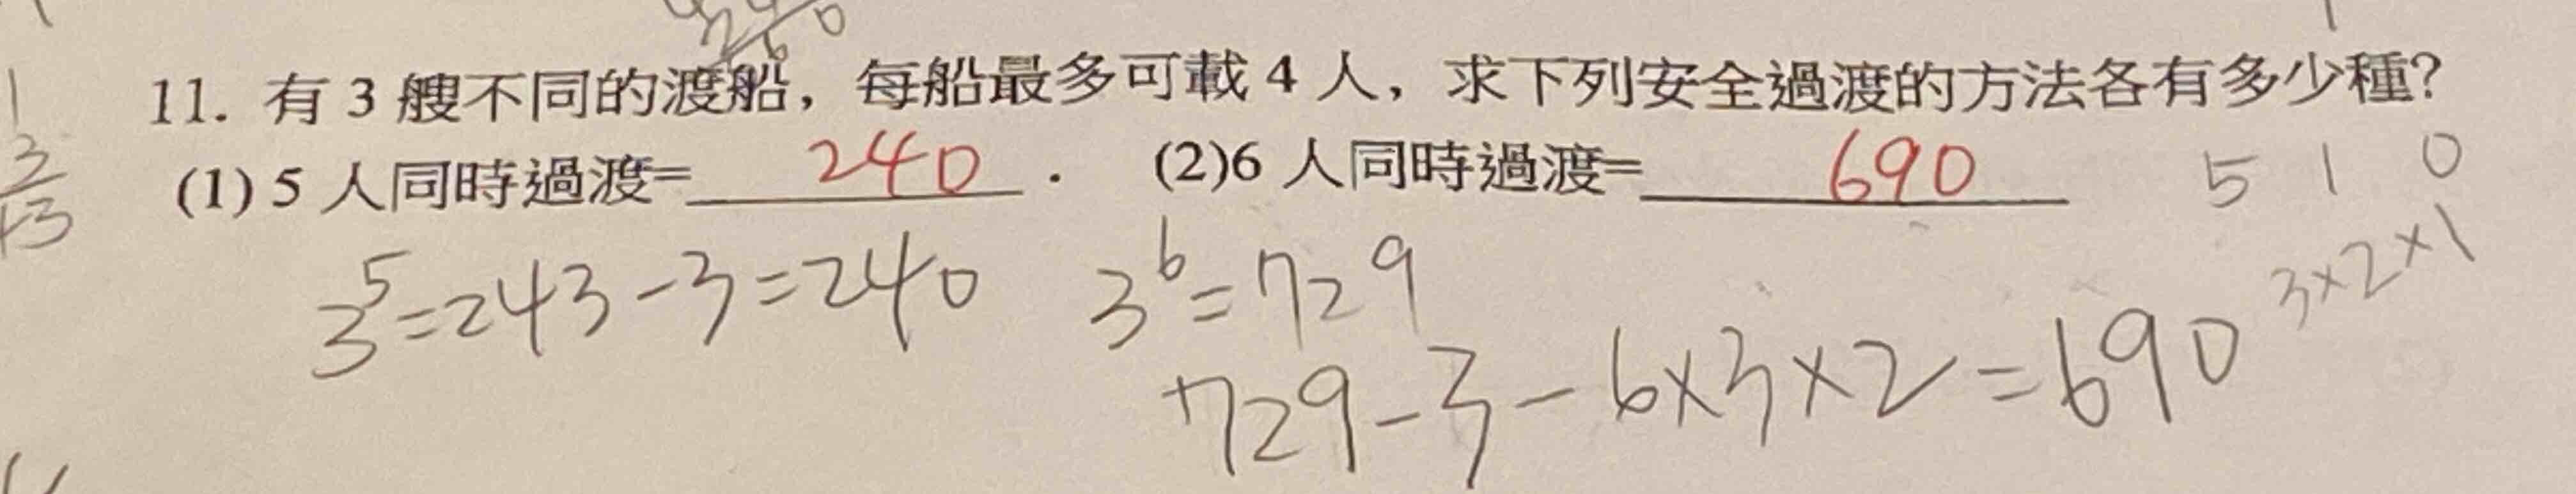 11. 有 3 艘不同的渡船，每船最多可載 4 人，求下列安全過渡的方法各有多少種?
(1) 5 人同時過渡= 240 . (2)6 人同時過渡= 690
5 1 0
3×2×1
3^5=243-3=240 3^6=729
729-3-6×3×2=690